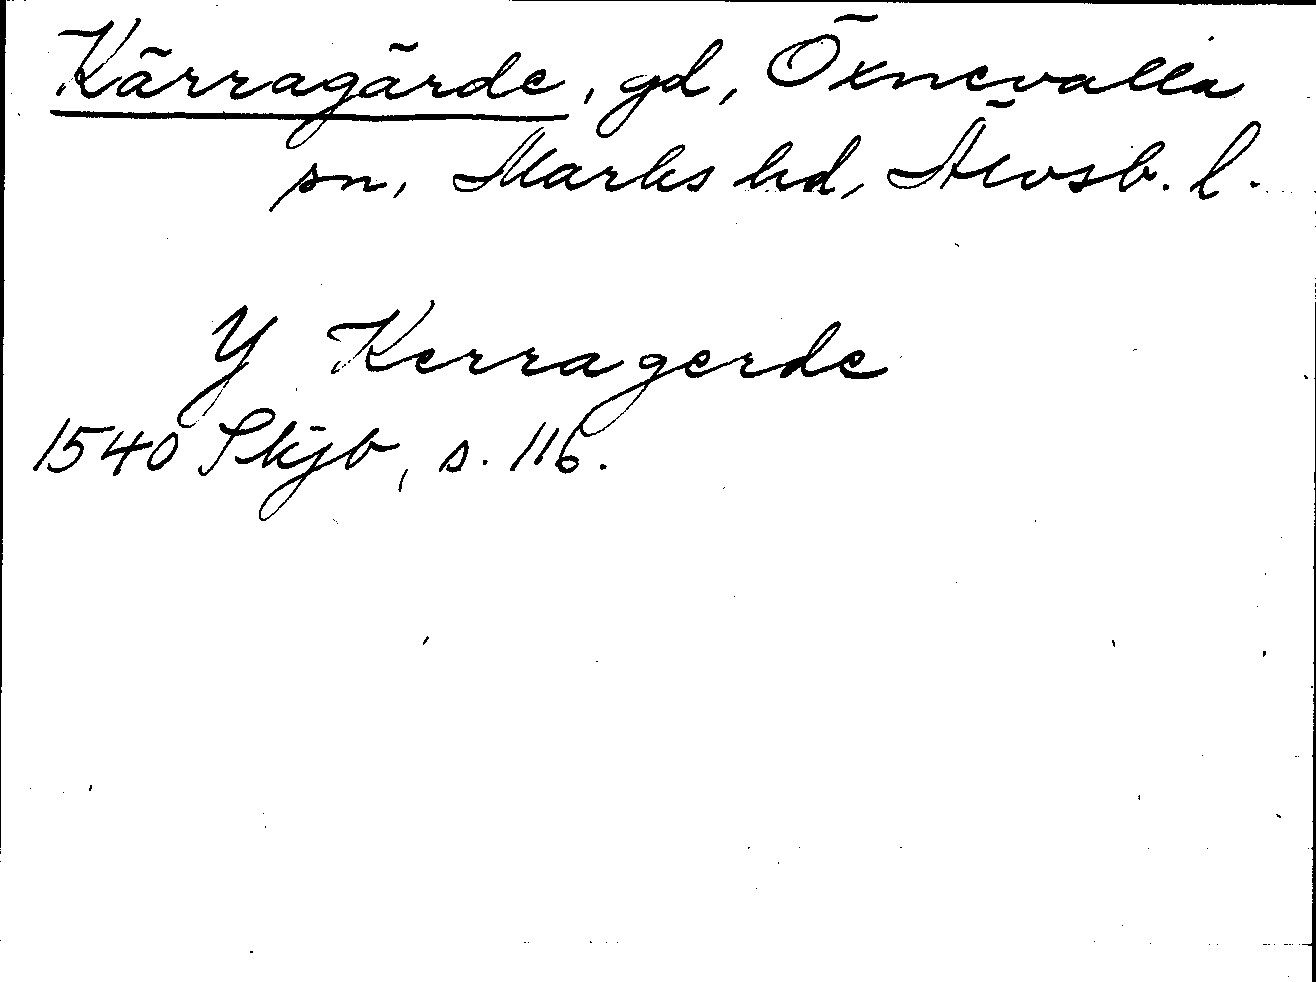 Kärragärde, gd, Öxnevalla
sn, Marks hd, Älvsb. l.
Y Kerragerde
1540 Skjb, s. 116.